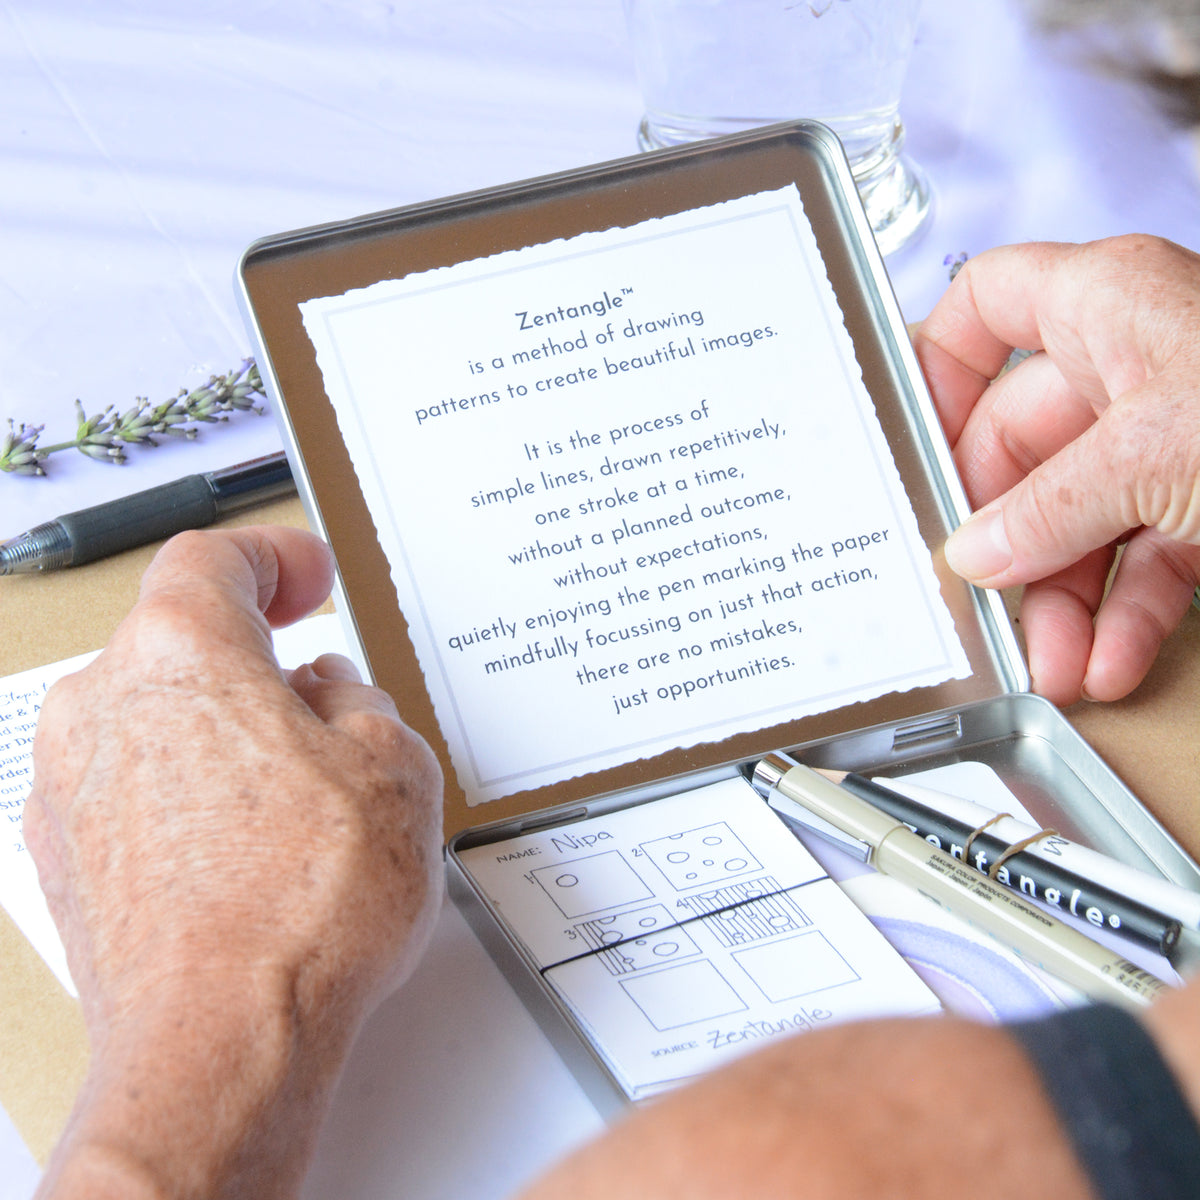 Zentangle™
is a method of drawing
patterns to create beautiful images.
It is the process of
simple lines, drawn repetitively,
one stroke at a time,
without a planned outcome,
without expectations,
quietly enjoying the pen marking the paper
mindfully focussing on just that action,
there are no mistakes,
just opportunities.
NAME: Nipa
1
2
3
4
SOURCE: Zentangle
zentangle®
SAKURA COLOR PRODUCTS CORPORATION
Japan / Japon / Japón
M
Steps